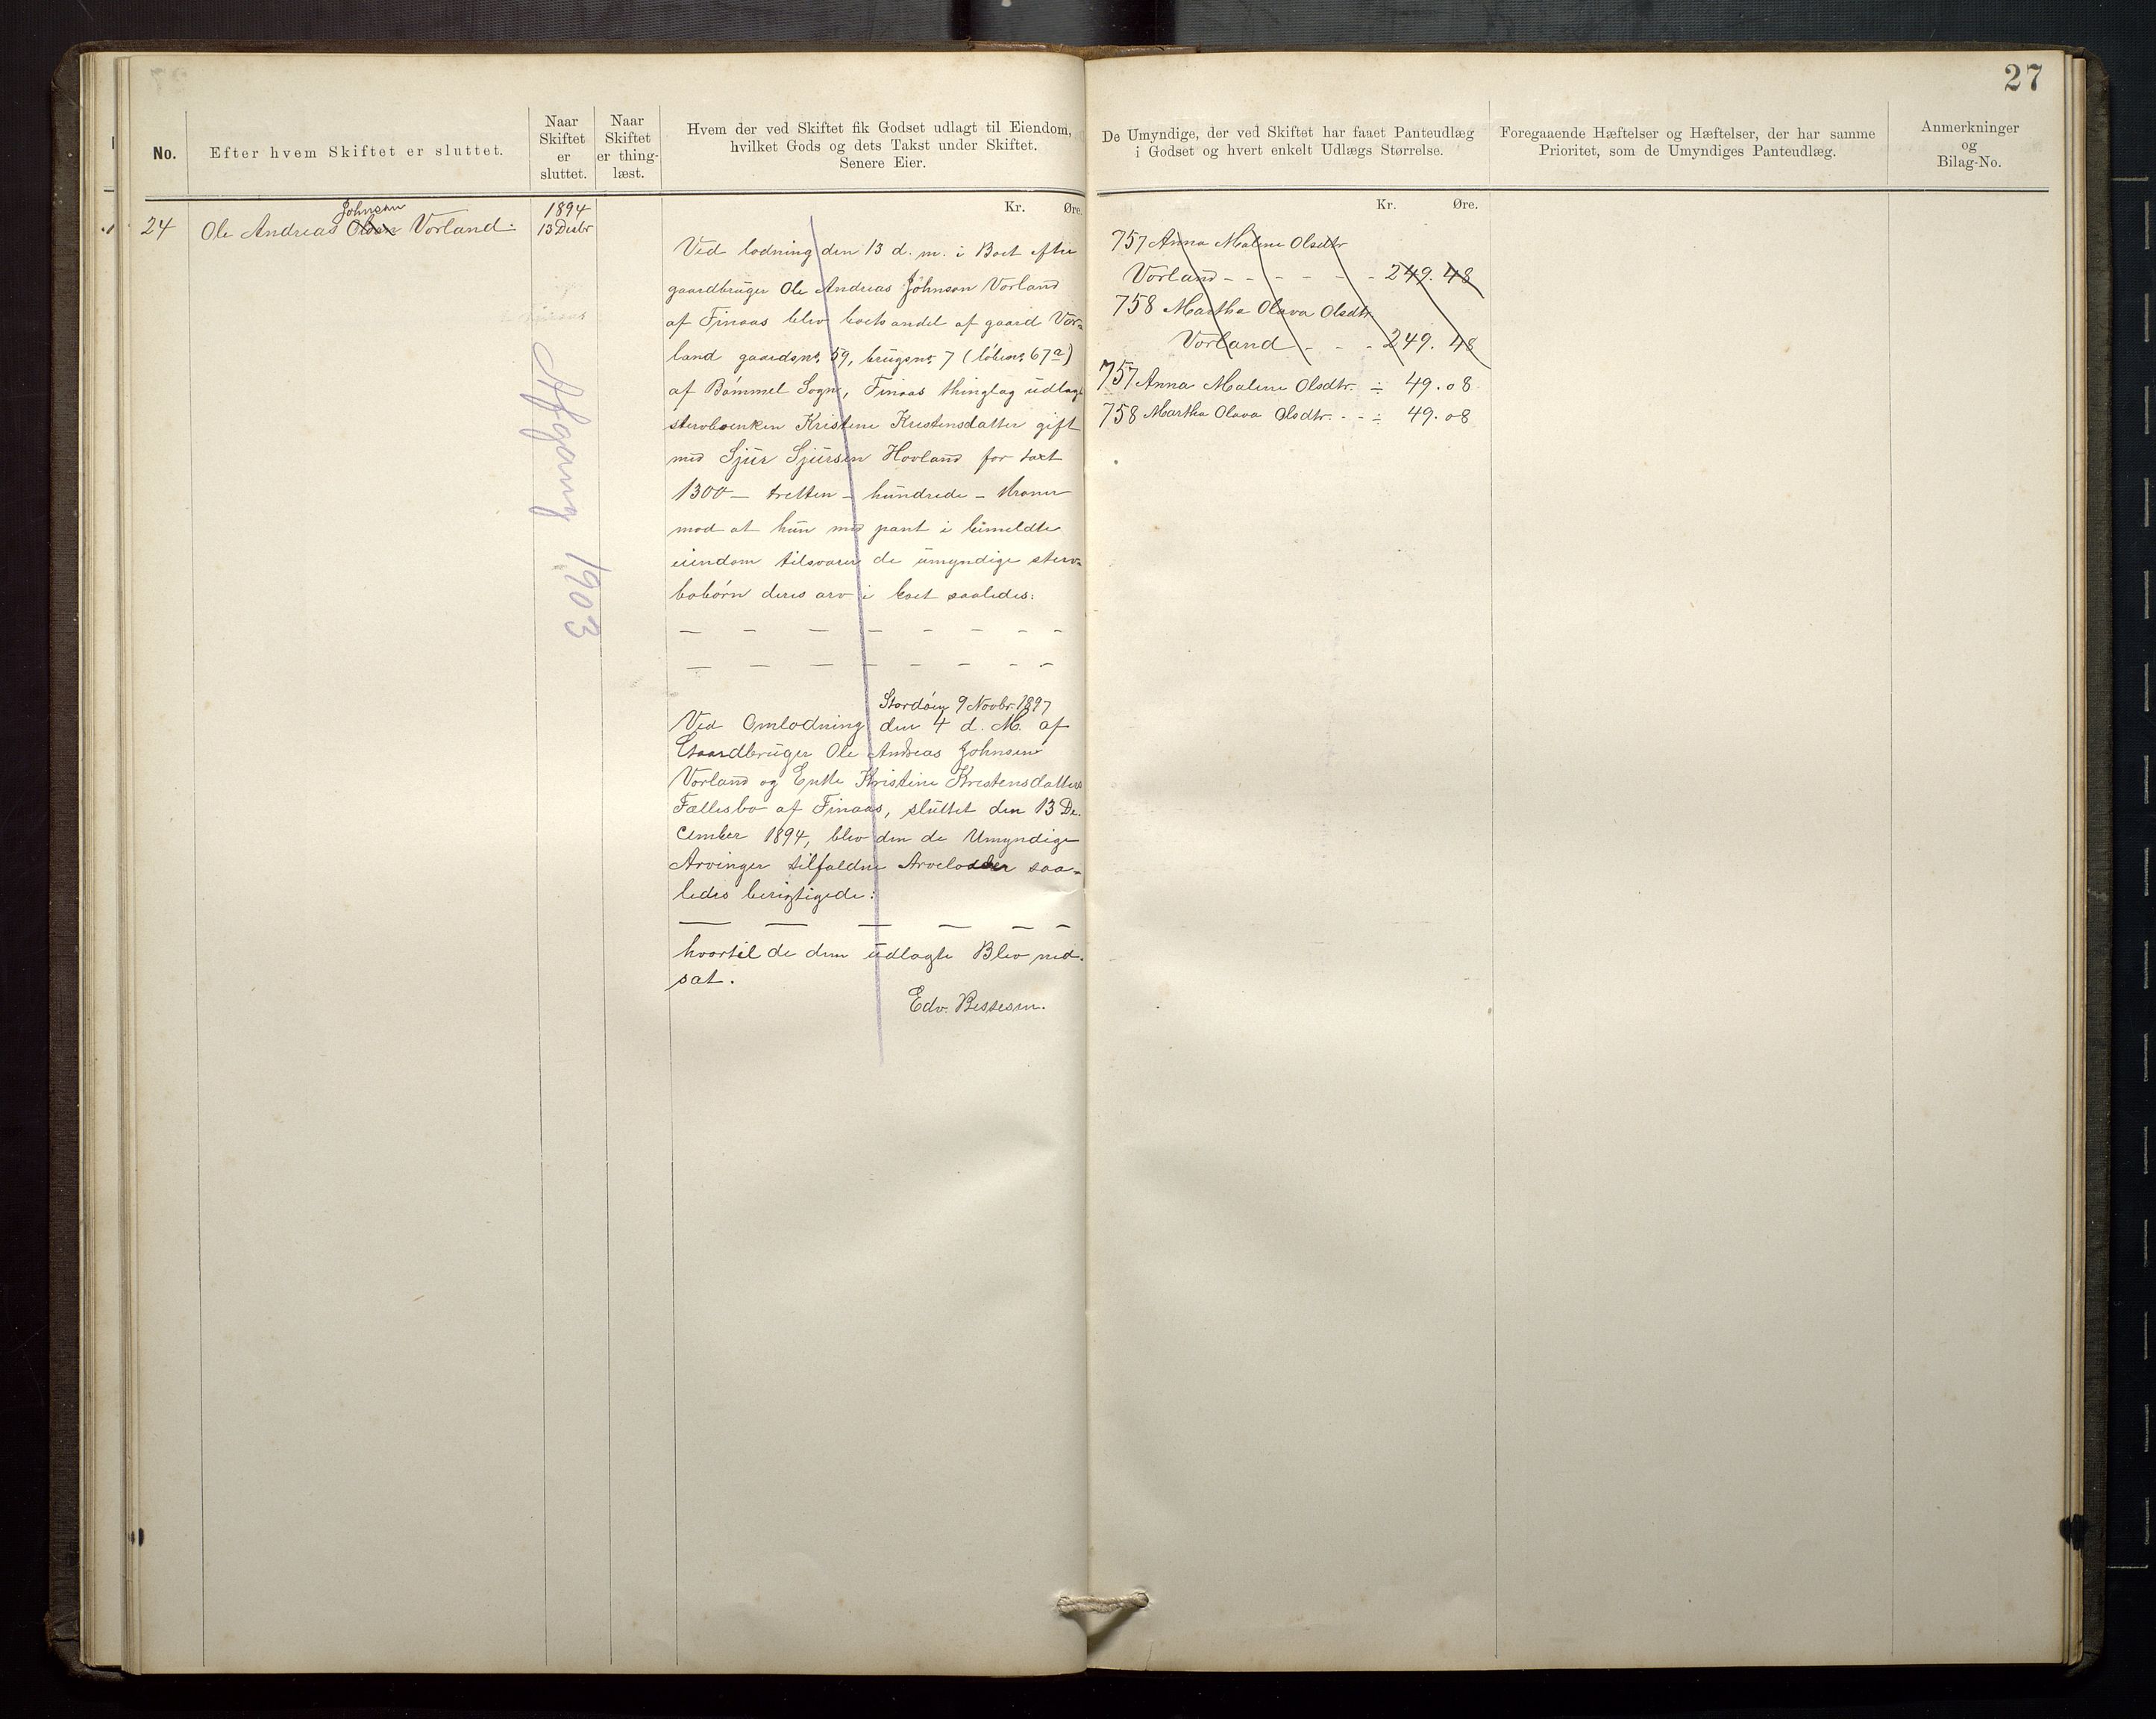 27
No.
Efter hvem Skiftet er sluttet.
Naar
Skiftet
er
sluttet.
Naar
Skiftet
er thing-
læst.
Hvem der ved Skiftet fik Godset udlagt til Eiendom,
hvilket Gods og dets Takst under Skiftet.
Senere Eier.
De Umyndige, der ved Skiftet har faaet Panteudlæg
i Godset og hvert enkelt Udlægs Størrelse.
Foregaaende Hæftelser og Hæftelser, der har samme
Prioritet, som de Umyndiges Panteudlæg.
Anmerkninger
og
Bilag-No.
24
Johnsen
Ole Andreas Olsen Vorland.
1894
13 Desbr
Afgang 1903
Kr. Øre.
Ved lodning den 13 d. m. i Boet efter
gaardbruger Ole Andreas Johnsen Vorland
af Finaas blev boets andel af gaard Vor-
land gaardsno. 59, brugsno. 7 (løbeno. 67a)
af Bømmel Sogn, Finaas thinglag udlagt
stervboenken Kristine Kristensdatter gift
med Sjur Sjursen Hovland for taxt
1300 – tretten – hundrede – Kroner
mod at hun med pant i bemeldte
eiendom tilsvarer de umyndige sterv-
bobørn deres arv i boet saaledes:
— — — — — — — —
— — — — — — — —
Stordøen 9 Novbr. 1897
Ved Omlodning den 4 d. M. af
Gaardbruger Ole Andreas Johnsen
Vorland og Enke Kristine Kristensdatters
Fællesbo af Finaas, sluttet den 13 De-
cember 1894, blev den de Umyndige
Arvinger tilfaldne Arvelodder saa-
ledes berigtigede:
— — — — — —
hvortil de dem udlagte Blev ned-
sat.
Edv.
Kr. Øre.
757 Anna Malene Olsdtr
Vorland - - - - - - 249. 48
758 Martha Olava Olsdtr
Vorland - - - 249. 48
757 Anna Malene Olsdtr. ÷ 49. 08
758 Martha Olava Olsdtr. - - ÷ 49. 08